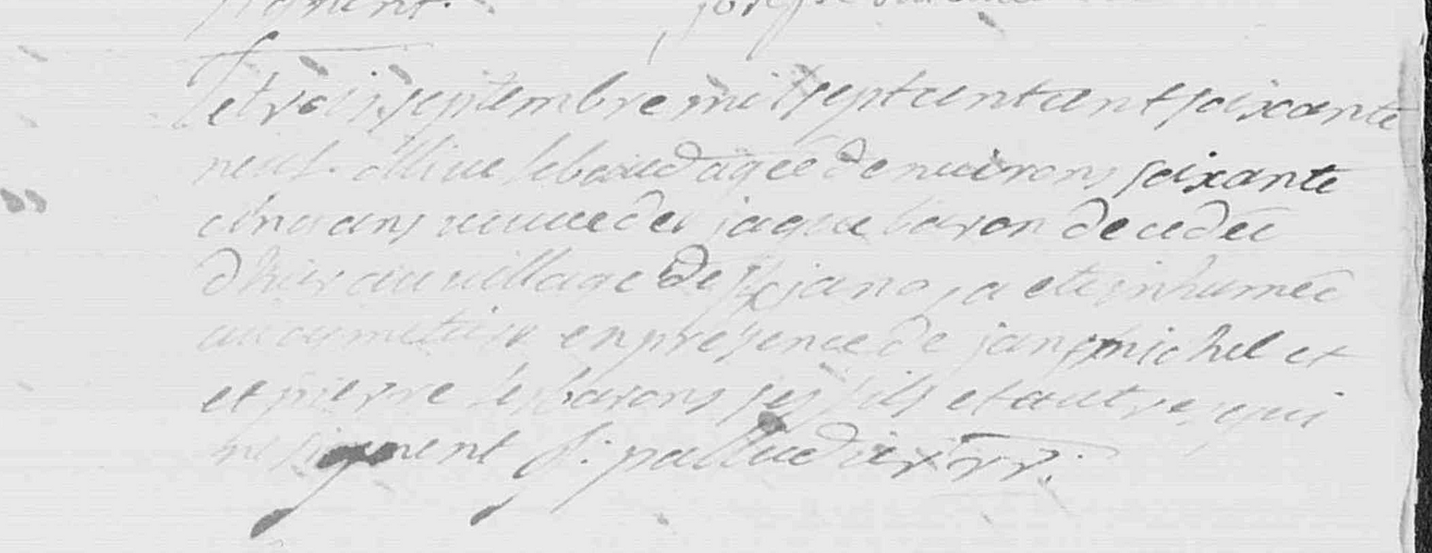 signent.
Le trois septembre mil sept cent cent soixante
neuf. ollive lebaud agée denvirons soixante
cinq ans veuve de jaque baron decedée
dhier au village de a ete inhumée
au cimetiere en presence de jan michel et
et pierre les barons ses fils et autres qui
ne signent f: palludier rr.